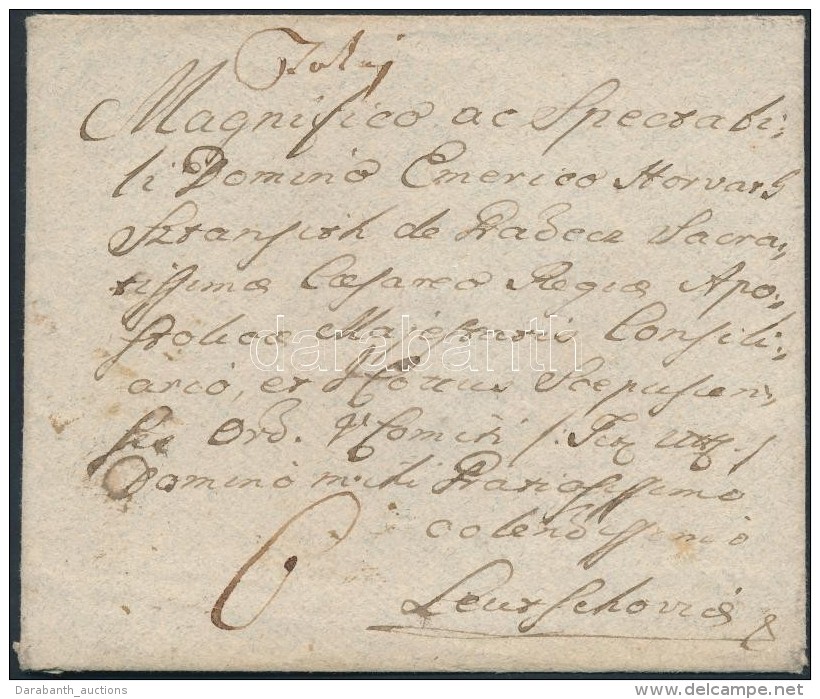 Tokaj
Magnifico ac Spectabi-
li Domino Emerico Horvath
Sztansith de Gradecz Sacra-
tissimae Caesareo Regiae Apo-
stolicae Majestatis Consili-
ario, et Cottus Scepusien-
sis Ord. V Comiti /: Titt :/
Domino mihi Gratiosissimo
colendissimo
6
Leutschoviae
darabanth
Darabanth_auctions
www.delcampe.net